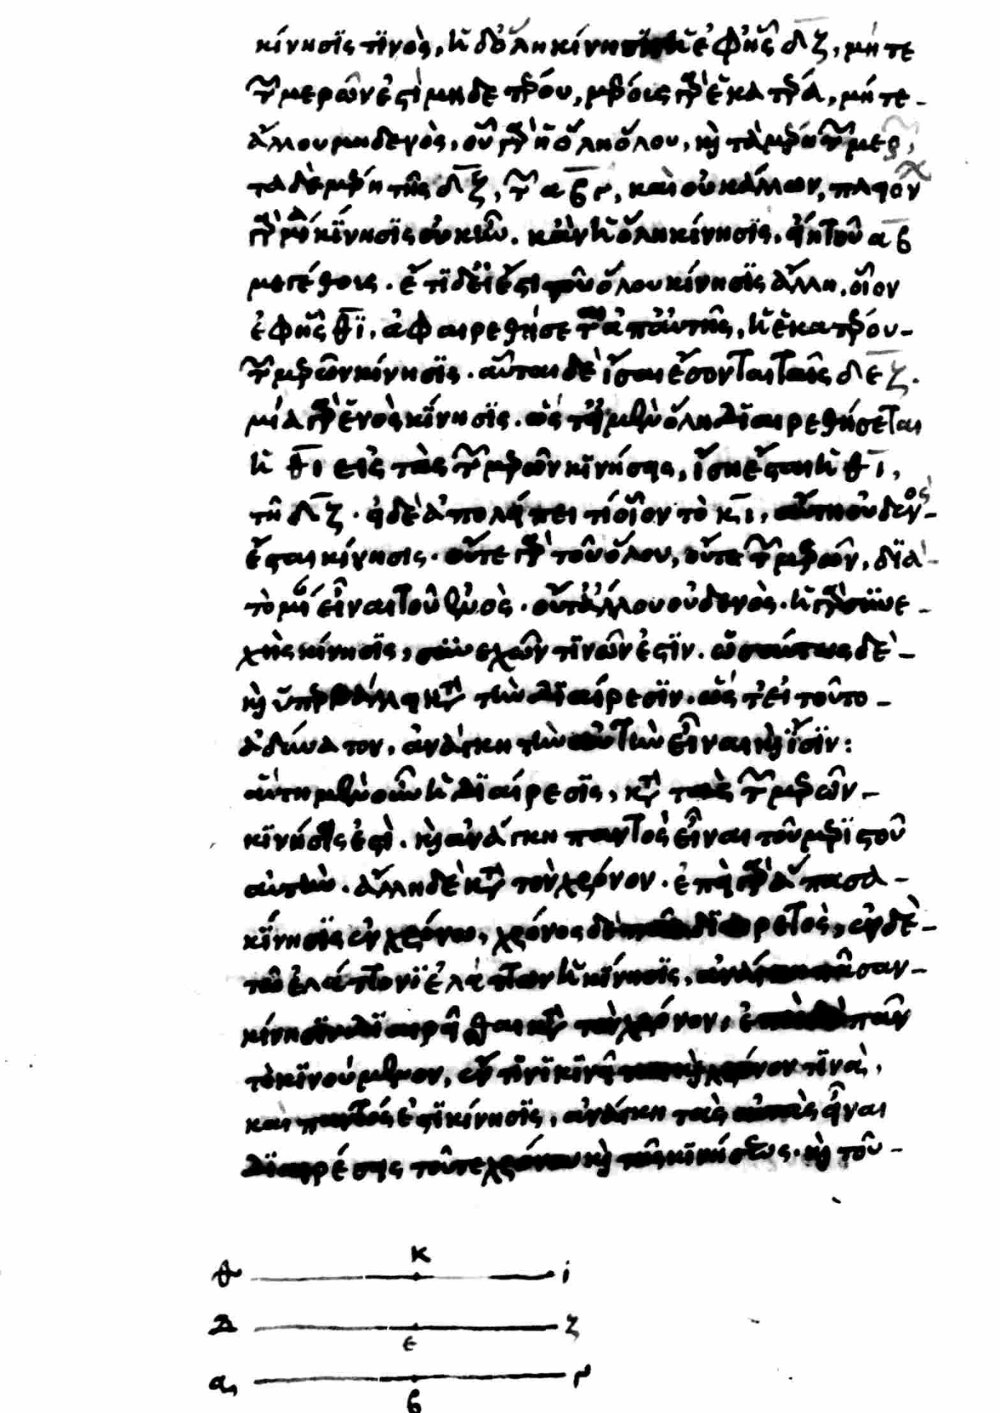 κίνησϊς τϊνὸς, ἡ δ' ὅλη κίνησϊς ἡ ἐφ' ἧς δ̅ζ̅, μήτε
τῶν μερῶν ἐστὶ μηδετέρου, μέρους γὰρ ἑκατέρα, μήτε
ἄλλου μηδενὸς, οὗ γὰρ ἡ ὅλη ὅλου, καὶ τὰ μέρη τῶν μερ
τὰ δὲ μέρη τῆς δ̅ζ̅, τῶν α̅β̅γ̅, καὶ οὐκ ἄλλων, πλειόνων
γὰρ μία κίνησϊς οὐκ ἦν. κἂν ἡ ὅλη κίνησϊς, εἴη τοῦ α̅β̅
μεγέθους. ἔτϊ δ' εἰ ἔστι τοῦ ὅλου κίνησϊς ἄλλη, οἷον
ἐφ' ἧς θ̅ϊ̅, ἀφαιρεθήσεται ἀπ' αὐτῆς, ἡ ἑκατέρου
τῶν μερῶν κίνησϊς. αὗται δὲ ἴσαι ἔσονται ταῖς δ̅ε̅ζ̅.
μία γὰρ ἑνὸς κίνησϊς. ὥστ' εἰ μὲν ὅλη διαιρεθήσεται
ἡ θ̅ι̅ εἰς τὰς τῶν μερῶν κϊνήσεις, ἴση ἔσται ἡ θ̅ι̅,
τῆ δ̅ζ̅. εἰ δὲ ἀπολείπει τὶ οἷον τὸ κ̅ι̅, αὕτη οὐδενὸς
ἔσται κίνησις. οὔτε γὰρ τοῦ ὅλου, οὔτε τῶν μερῶν, δϊὰ
τὸ μίαν εἶναι τοῦ ἑνὸς. οὔτ' ἄλλου οὐδενὸς. ἡ γὰρ συνε
χὴς κίνησϊς, συνεχῶν τϊνῶν ἐστϊν. ὡσαύτως δὲ
καὶ ὑπερβάλλει κατὰ τὴν διαίρεσϊν. ὥστ' εἰ τοῦτο
ἀδύνατον, ἀνάγκη τὴν αὐτὴν εἶναι καὶ ἴσϊν:
αὕτη μὲν οὖν ἡ διαίρεσϊς, κατὰ τὰς τῶν μερῶν
κϊνήσεις ἐστὶ. καὶ ἀνάγκη παντὸς εἶναι τοῦ μερϊστοῦ
αὐτὴν. ἄλλη δὲ κατὰ τὸν χρόνον. ἐπεὶ γὰρ ἅπασα
κίνησϊς ἐν χρόνω, χρόνος δὲ πᾶς διαιρετὸς, ἐν δὲ
τῶ ἐλάττονϊ ἐλάττων ἡ κίνησϊς, ἀνάγκη πᾶσαν
κίνησϊν διαιρεῖσθαι κατὰ τὸν χρόνον, ἐπεὶ δὲ πᾶν
τὸ κϊνούμενον, ἔν τϊνϊ κϊνεῖται καὶ χρόνον τϊνὰ,
καὶ παντός ἐστϊ κίνησϊς, ἀνάγκη τὰς αὐτὰς εἶναι
διαιρέσεις τοῦ τε χρόνου καὶ τῆς κϊνήσεως. καὶ τοῦ
θ κ ι
δ ε ζ
α β γ